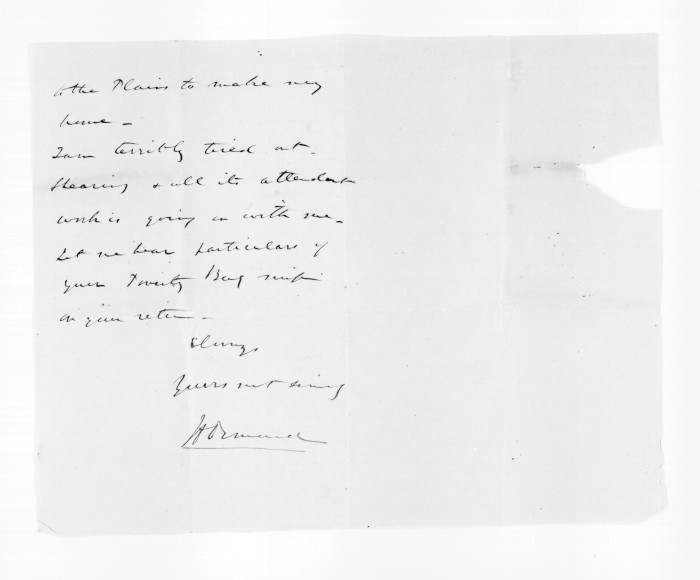 to the Plains to make my
home –
I am terribly tired out –
Shearing & all its attendant
work is going on with me –
Let me hear particulars of
your Poverty Bay
on your return –
Always
Yours most sincy